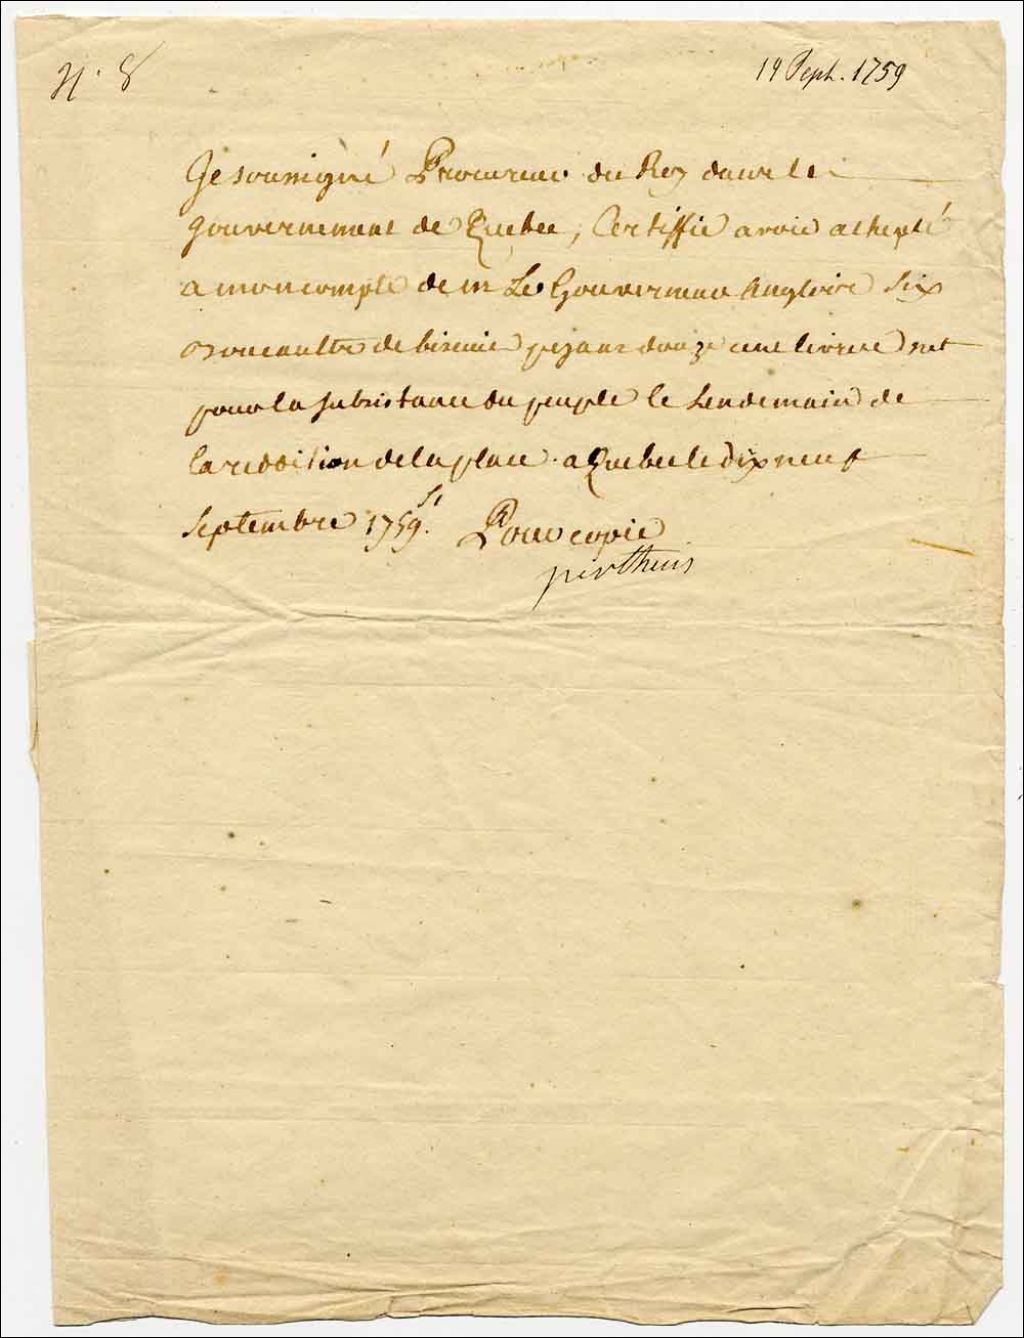 N. 8
19 Sept. 1759
Je soussigné Procureur du Roy dans le
gouvernement de Quebec, Certiffie avoir achepté
a mon compte de m Le Gouverneur Anglois Six
de biscuit pezant douze cent livres net
pour la subsistance du peuple le Lendemain de
la reddition de la place. a Quebec le dix neuf
Septembre 1759. Pour copie
perthuis